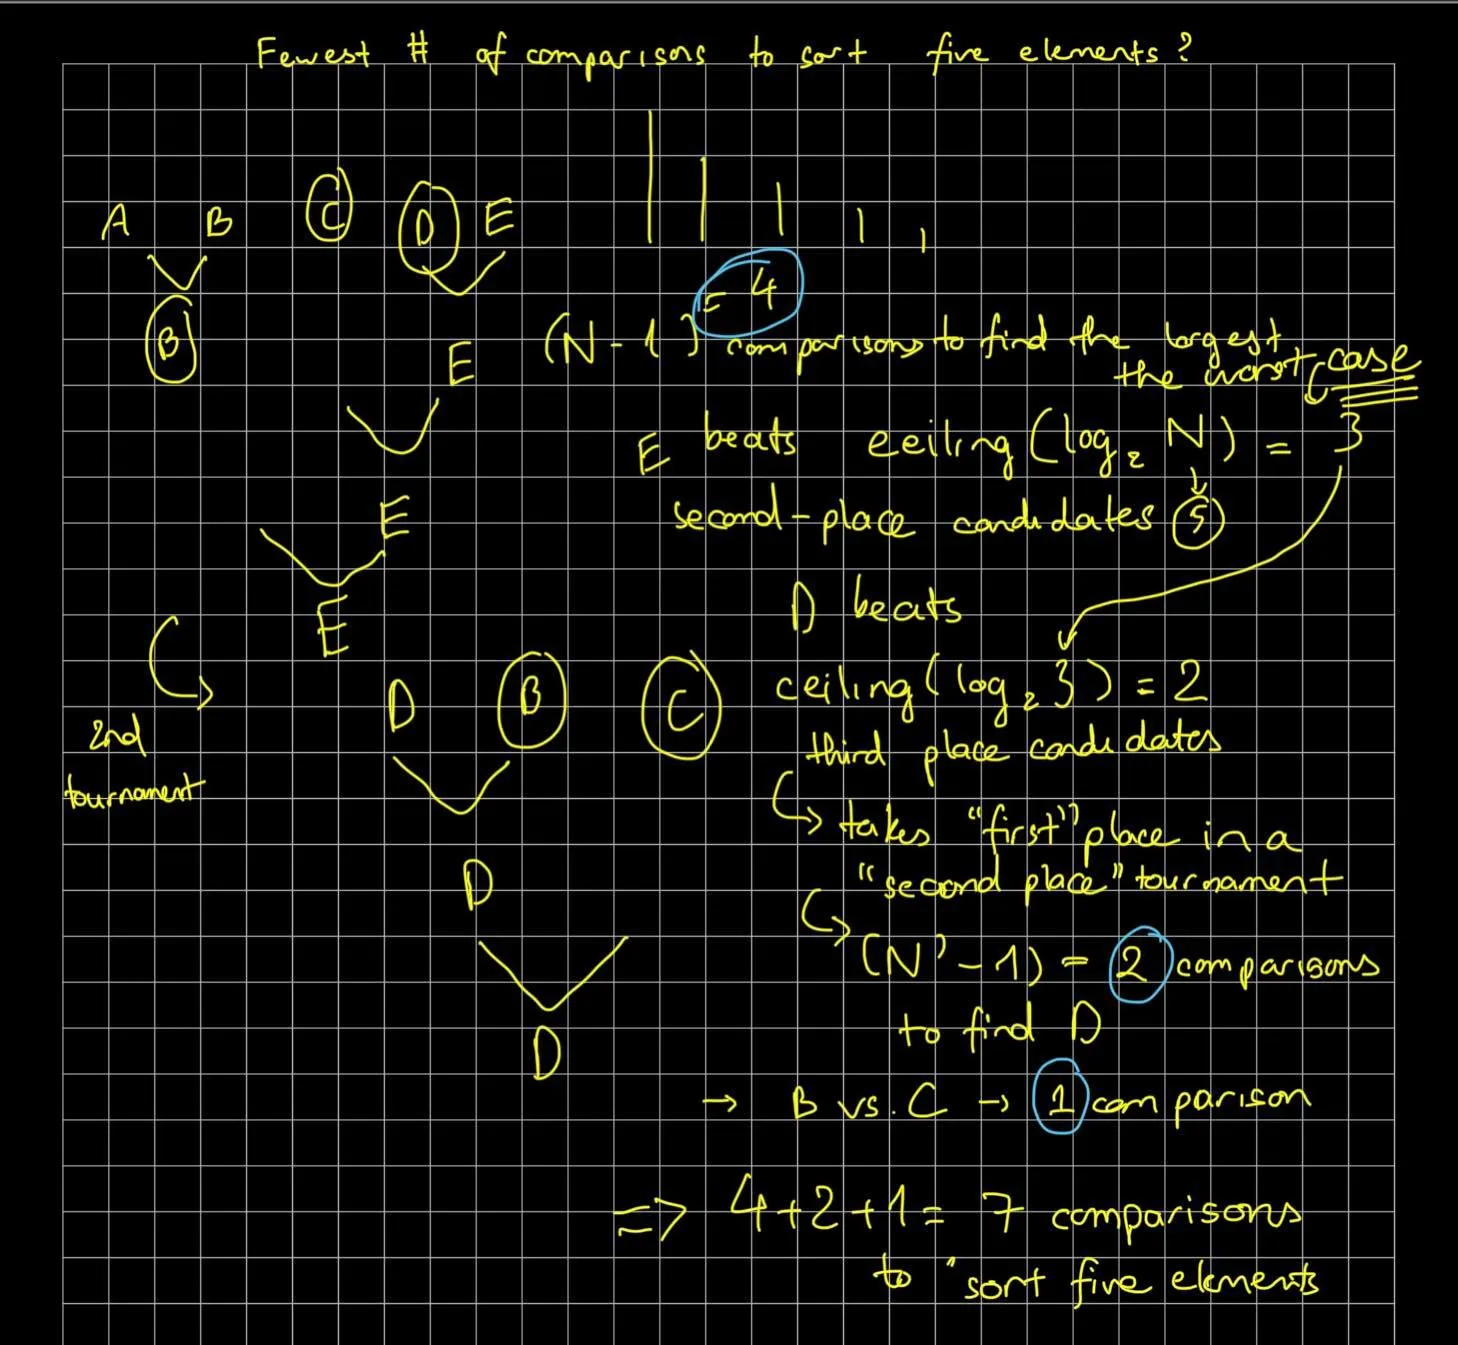 Fewest # of comparisons to sort five elements?
A B C D E
B
E
= 4
(N-1) comparisons to find the largest
the worst case
E beats ceiling(log₂ N) = 3
E
second-place candidates 5
D beats
E
2nd
tournament
D B C
ceiling(log₂ 3) = 2
third place candidates
takes "first" place in a
"second place" tournament
D
(N' - 1) = 2 comparisons
to find D
D
→ B vs. C → 1 comparison
⇒ 4+2+1 = 7 comparisons
to sort five elements